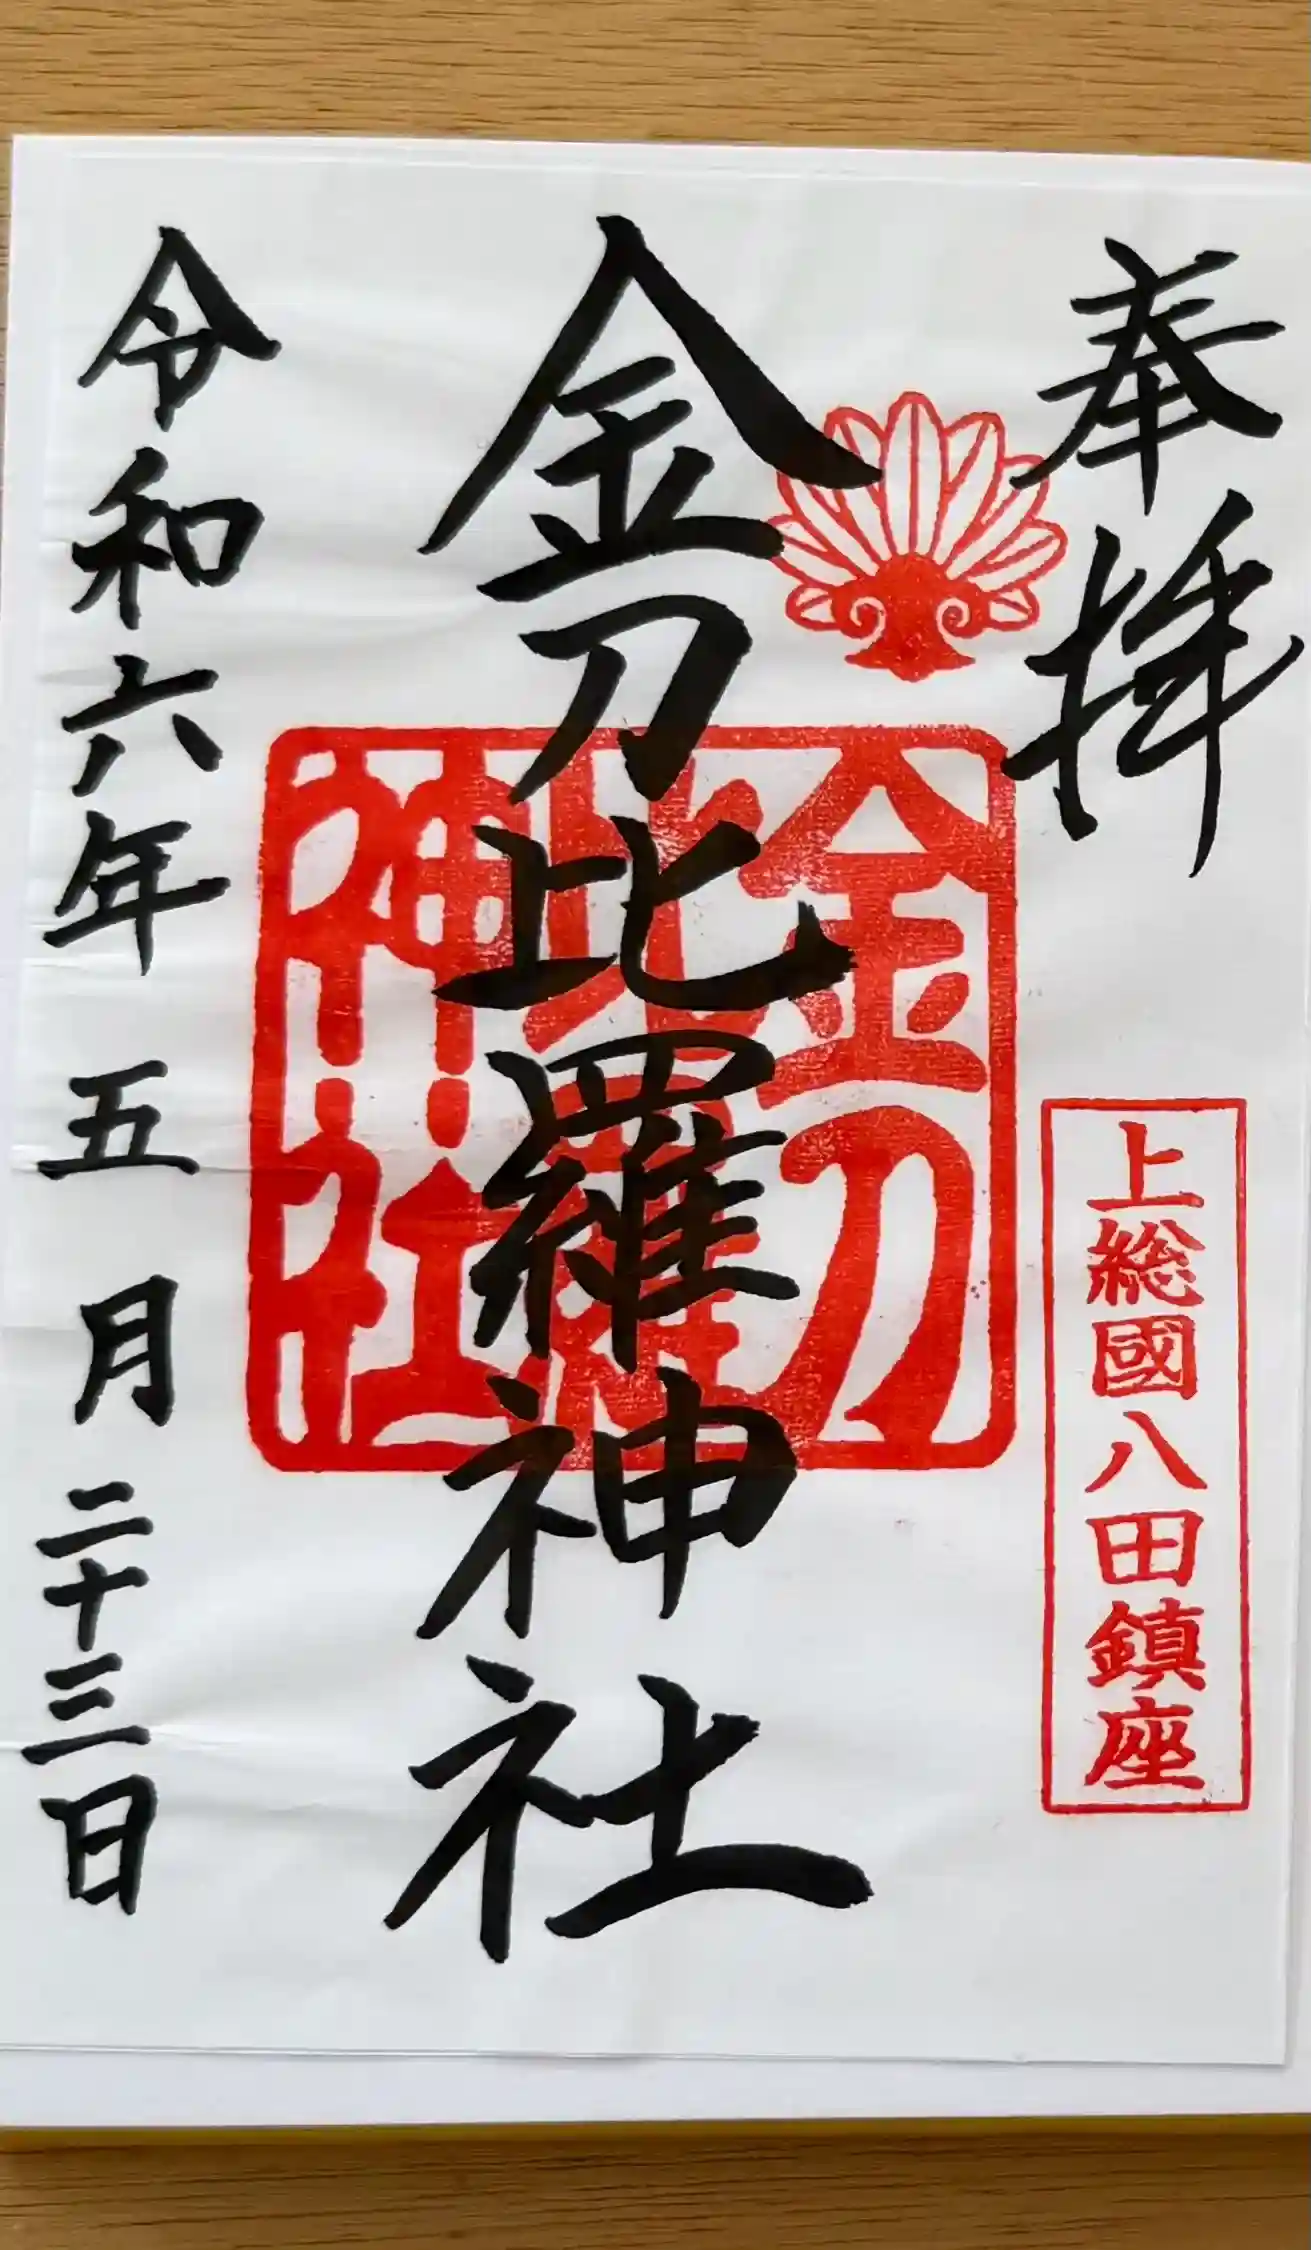 奉拝
上総國八田鎮座
金刀比羅神社
金刀
比羅
神社
令和六年五月二十三日